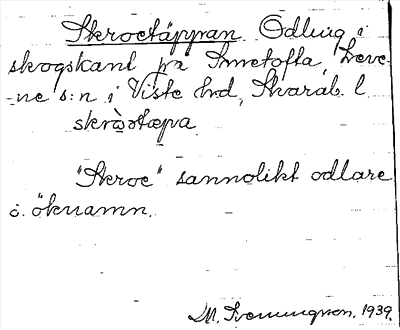 Skroetäppan Odling i
skogskant på Smetofta, Leve-
ne s:n i Viste hrd, Skarab. l
skròetæpa
"Skroe" sannolikt odlare
ö. öknamn.
M. 1939.